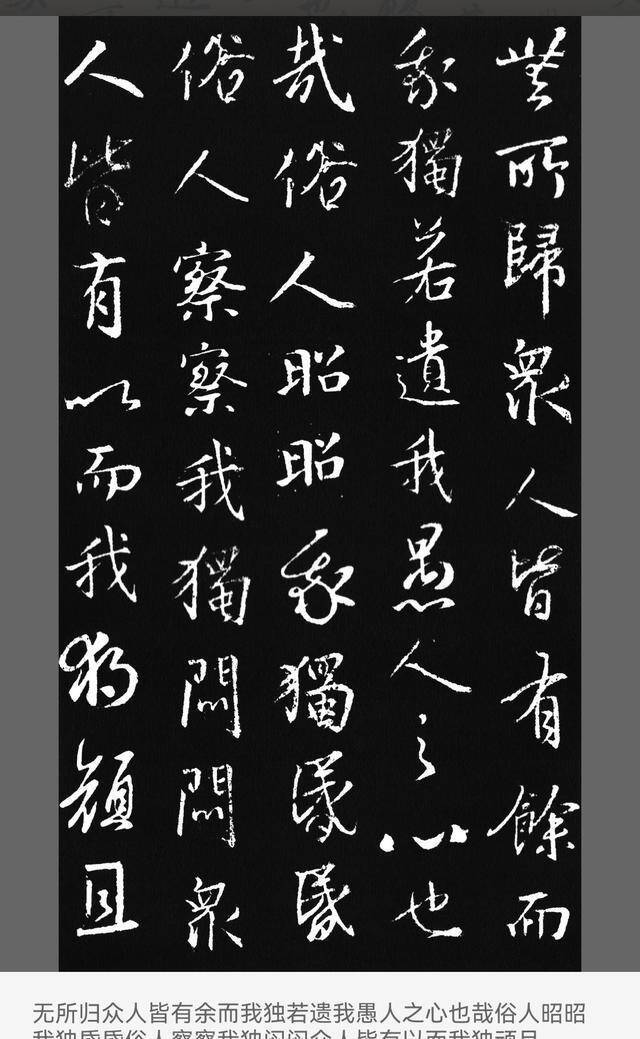 無所歸眾人皆有餘而
我獨若遺我愚人之心也
哉俗人昭昭我獨昏昏
俗人察察我獨悶悶眾
人皆有以而我獨頑且
无所归众人皆有余而我独若遗我愚人之心也哉俗人昭昭
我独昏昏俗人察察我独闷闷众人皆有以而我独顽且